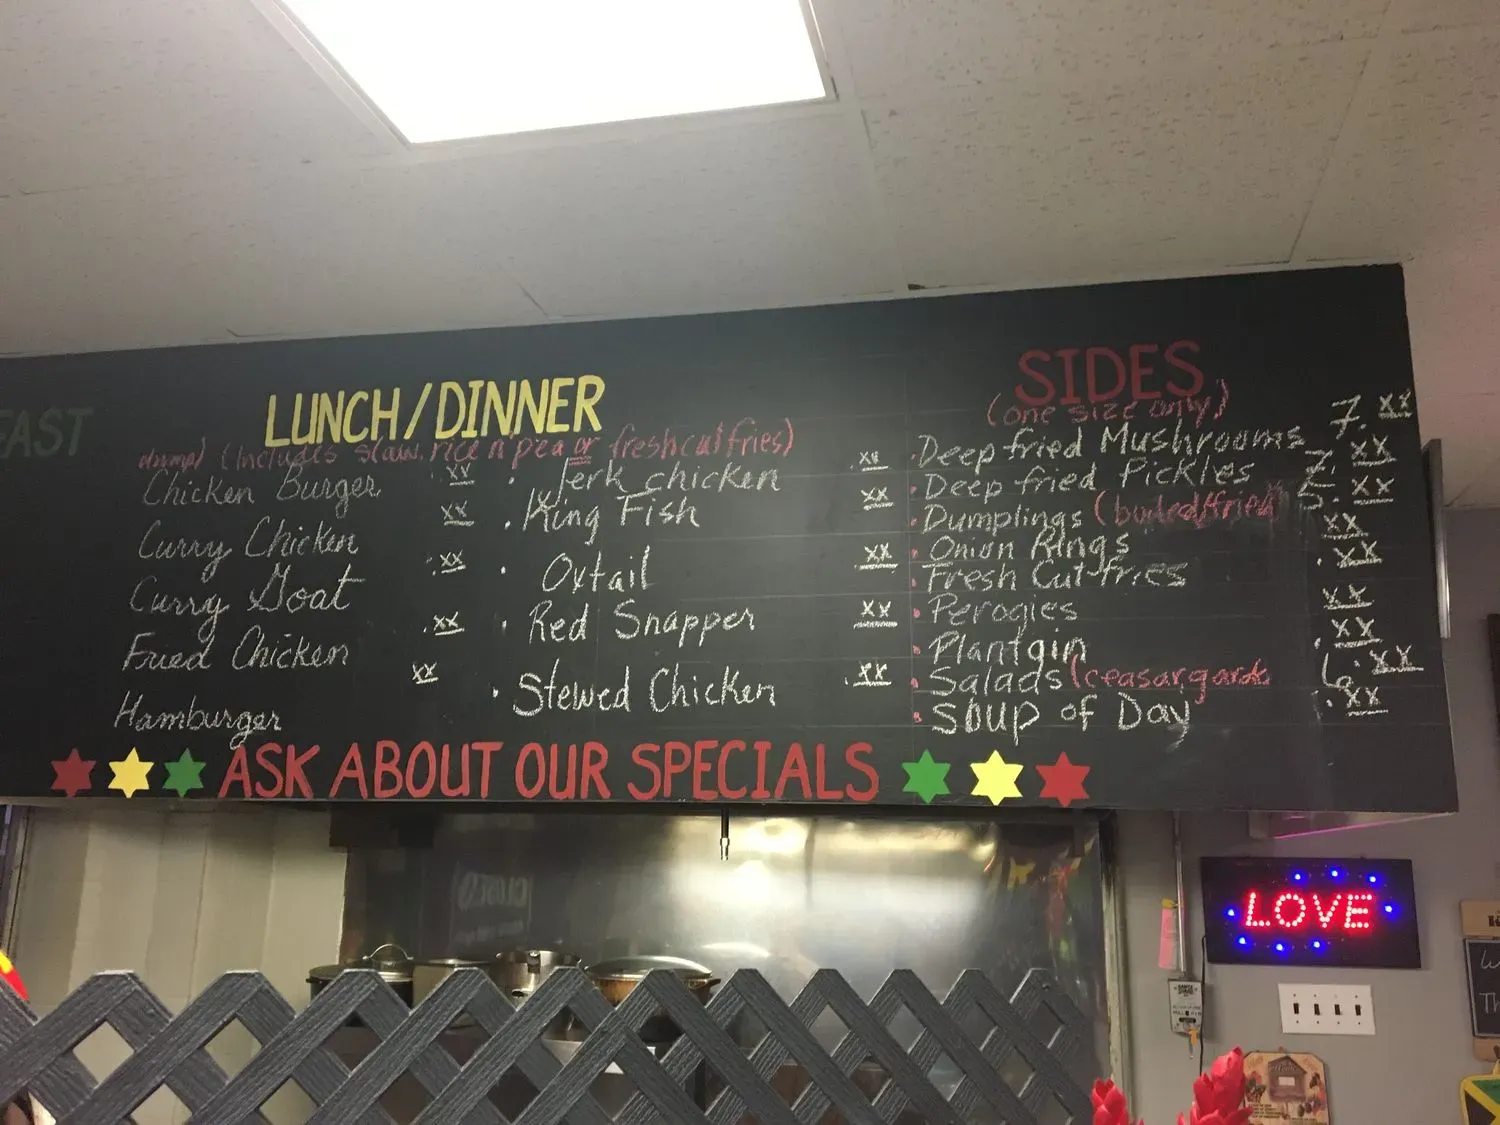 FAST
LUNCH/DINNER
(Includes slaw, rice n' pea or fresh cut fries)
Chicken Burger xx
Curry Chicken xx
Curry Goat .xx
Fried Chicken .xx
Hamburger xx
. Jerk chicken .xx
. King Fish xx
. Oxtail .xx
. Red Snapper xx
. Stewed Chicken .xx
SIDES
(one size only)
Deep fried Mushrooms 7.xx
Deep fried Pickles 7.xx
Dumplings (boiled/fried) 5.xx
Onion Rings xx
Fresh Cut fries .xx
Perogies xx
Plantain .xx
Salads (ceasar, garde 6.xx
Soup of Day .xx
ASK ABOUT OUR SPECIALS
LOVE